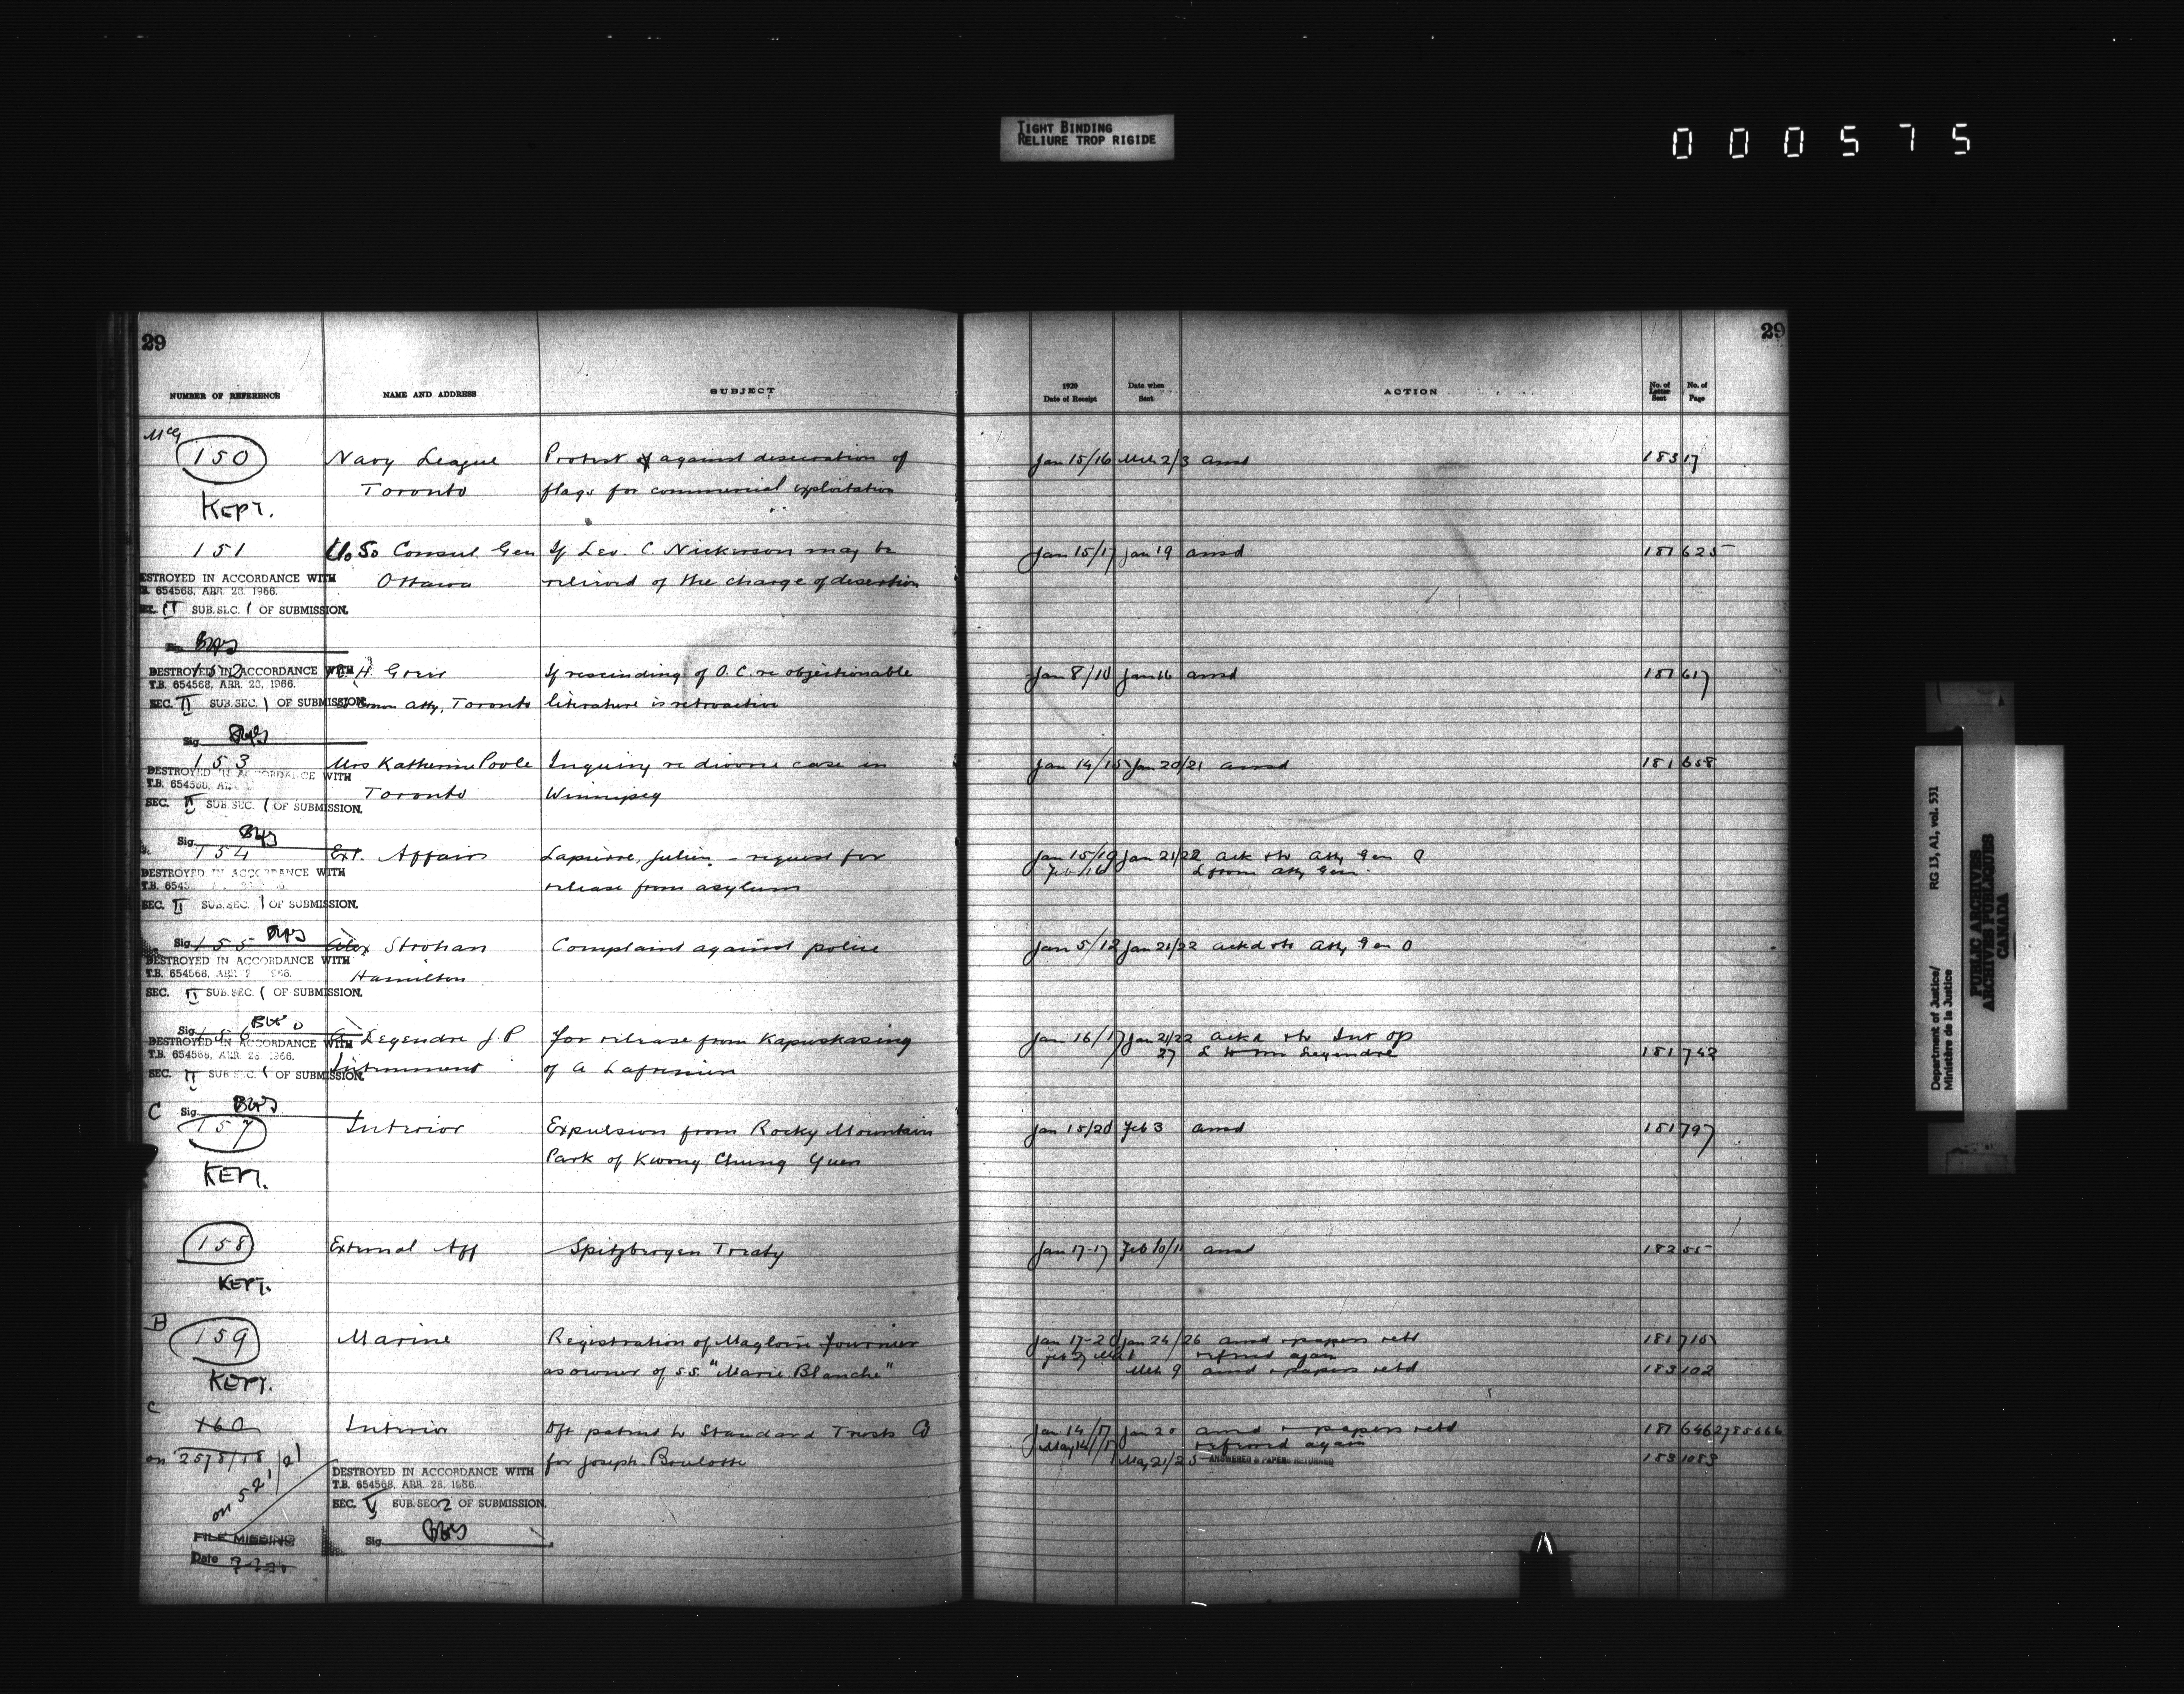 TIGHT BINDING
RELIURE TROP RIGIDE
000575
29
29
NUMBER OF REFERENCE NAME AND ADDRESS SUBJECT 1920 Date of Receipt Date when Sent ACTION No. of Letter Sent No. of Page
McG
150 Navy League Protest against desecration of Jan 15/16 Mch 2/3 ansd 183 17
Toronto flags for commercial exploitation
KEPT.
151 U.S. Consul Gen If Leo. C. Nickerson may be Jan 15/17 Jan 19 ansd 181 625
Ottawa relieved of the charge of desertion
DESTROYED IN ACCORDANCE WITH
T.B. 654568, APR. 28, 1966.
SEC. II SUB. SEC. 1 OF SUBMISSION.
152 H. Grier If rescinding of O.C. re objectionable Jan 8/10 Jan 16 ansd 181 617
Crown Atty, Toronto literature is retroactive
DESTROYED IN ACCORDANCE WITH
T.B. 654568, APR. 28, 1966.
SEC. II SUB. SEC. 1 OF SUBMISSION.
Sig.
153 Mrs Katherine Poole Inquiry re divorce case in Jan 14/15 Jan 20/21 ansd 181 658
Toronto Winnipeg
DESTROYED IN ACCORDANCE WITH
T.B. 654568, APR.
SEC. II SUB. SEC. 1 OF SUBMISSION.
Sig.
154 Ext. Affairs Lapierre, Julien - request for Jan 15/19 Jan 21/22 ack & to Atty Gen Q
release from asylum Feb 16 L from Atty Gen.
DESTROYED IN ACCORDANCE WITH
T.B. 6545
SEC. II SUB. SEC. 1 OF SUBMISSION.
Sig.
155 Alex Strohan Complaint against police Jan 5/12 Jan 21/22 ackd & to Atty Gen O
Hamilton
DESTROYED IN ACCORDANCE WITH
T.B. 654568, APR. 2 1966.
SEC. II SUB. SEC. 1 OF SUBMISSION.
Sig.
156 Legendre J.P For release from Kapuskasing Jan 16/17 Jan 21/22 ackd & to Int Op
Internment of A Lafreniere 27 L to Mr Legendre 181 742
DESTROYED IN ACCORDANCE WITH
T.B. 654568, APR. 28 1966.
SEC. II SUB. SEC. 1 OF SUBMISSION.
Sig.
C
157 Interior Expulsion from Rocky Mountain Jan 15/20 Feb 3 ansd 181 797
Park of Kwong Chung Yuen
KEPT.
158 External Aff Spitzbergen Treaty Jan 17-17 Feb 10/11 ansd 182 55
KEPT.
B
159 Marine Registration of Magloire Fournier Jan 17-20 Jan 24/26 ansd & papers retd 181 715
refered again
as owner of s.s. "Marie Blanche" Mch 9 ansd & papers retd 183 102
KEPT.
C
160 Interior Dft patent to Standard Trusts Co Jan 14/17 Jan 20 ansd & papers retd 181 646 2785666
May 14/17 refered again
on 2575/18/21 for Joseph Boulotte May 21/25 ANSWERED & PAPERS RETURNED 183 1089
on 521
DESTROYED IN ACCORDANCE WITH
T.B. 654568, APR. 28, 1966.
SEC. V SUB. SEC. 2 OF SUBMISSION.
Sig.
FILE MISSING
Date
Department of Justice/ RG 13, A1, vol. 531
Ministère de la Justice
PUBLIC ARCHIVES
ARCHIVES PUBLIQUES
CANADA